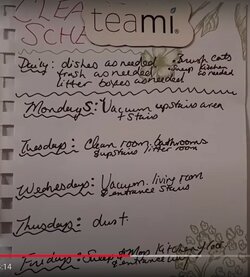 CLEA
teami®
SCH
Daily: dishes as needed • Brush cats
trash as needed • Sweep kitchen as needed
litter boxes as needed
Mondays: Vacuum upstairs area
+ stairs
Tuesdays: Clean room, bathrooms
& upstairs litter room
Wednesdays: Vacuum living room
& entrance stairs
Thursdays: dust
Fridays: Sweep & Mop Kitchen,
& entrance way
:14